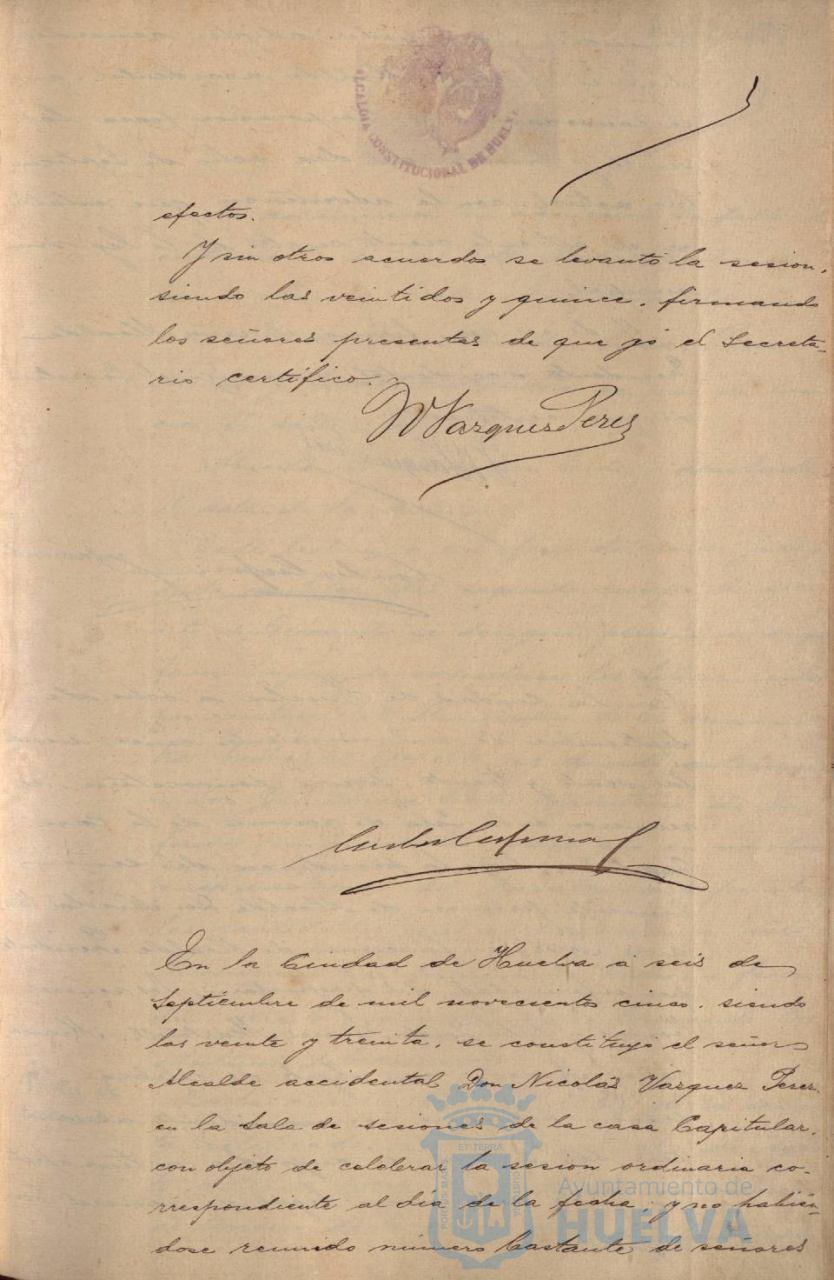 ALCALDIA CONSTITUCIONAL DE HUELVA
efectos.
Y sin otros acuerdos se levantó la sesion,
siendo las veintidos y quince, firmando
los señores presentes de que yo el Secreta-
rio certifico.
N Vazquez Perez
En la Ciudad de Huelva á seis de
Septiembre de mil novecientos cinco, siendo
las veinte y treinta, se constituyó el señor
Alcalde accidental Don Nicolás Vazquez Perez
en la Sala de sesiones de la casa Capitular,
con objeto de celebrar la sesion ordinaria co-
rrespondiente al día de la fecha, y no habién-
dose reunido número bastante de señores
Ayuntamiento de
HUELVA